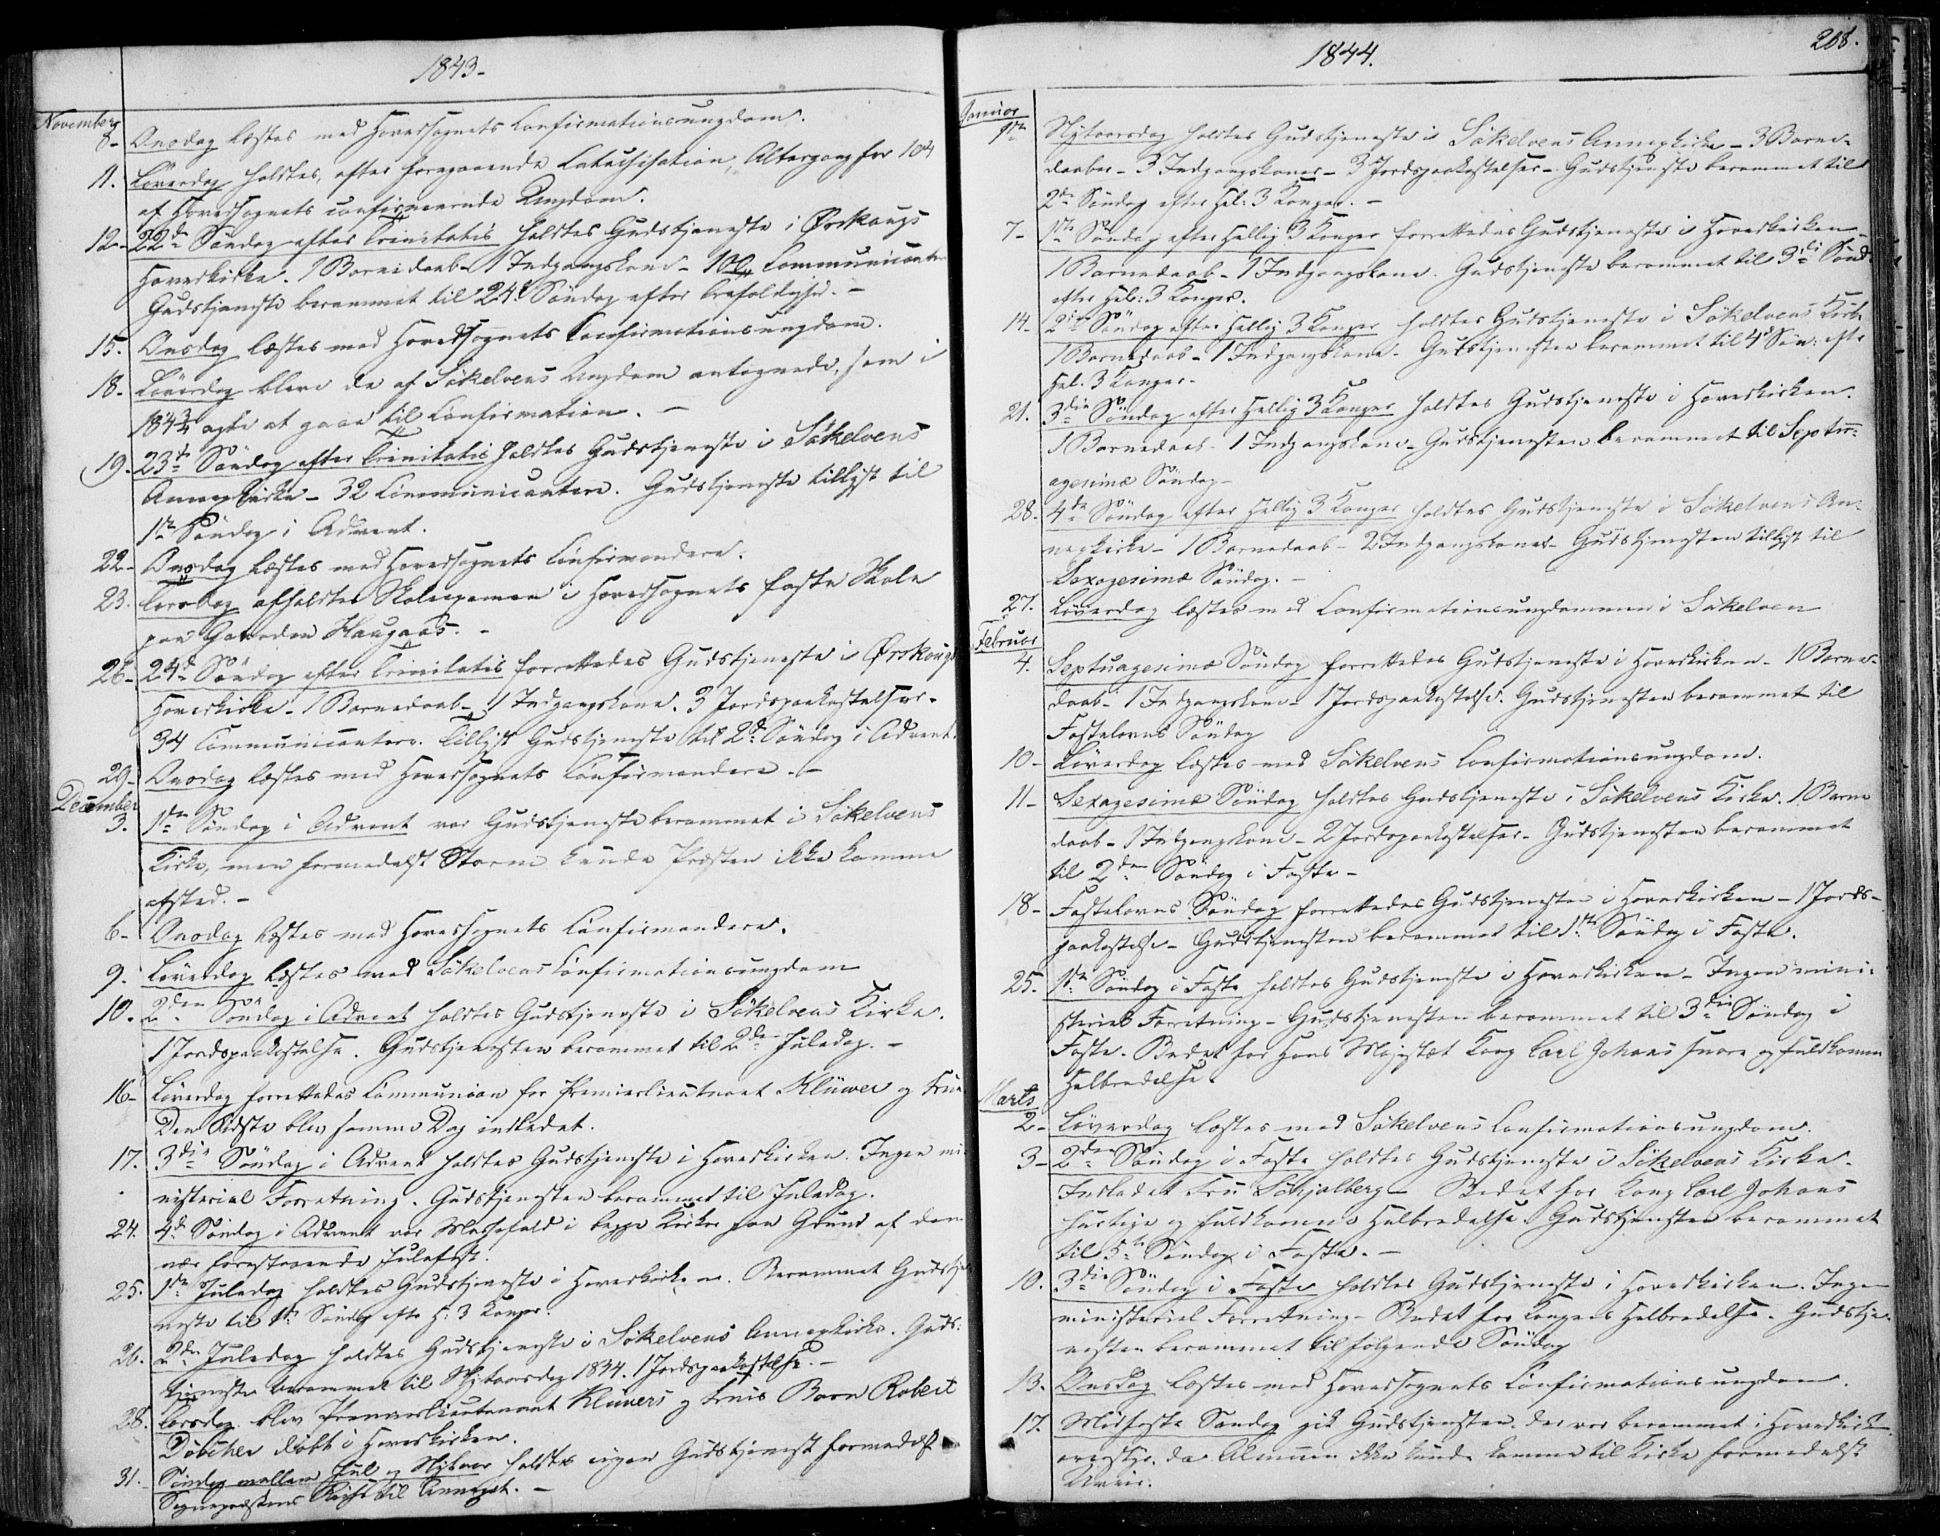 1843-
November
8- Onsdag læstes med Hovedsognets Confirmationsungdom.
11. Löverdag holdtes, efter foregaaende Catechisation, Altergang for 104
af Hovedsognets confirmeerende Ungdom.
12- 22de Söndag efter Trinitatis holdtes Gudstjeneste i Ørskougs
Hovedkirke. 1 Barnedaab- 1 Indgangskone- 100 Communicanter
Gudstjeneste berammet til 24de Söndag efter Trefoldighed. -
15. Onsdag læstes med Hovedsognets Confirmationsungdom.
18. Löverdag bleve de af Sökelvens Ungdom antegnede, som i
1843 agte at gaae til Confirmation. -
19. 23de Söndag efter Trinitatis holdtes Gudstjeneste i Sökelvens
Annexkirke- 32 Communicantere. Gudstjeneste tillyst til
1ste Söndag i Advent.
22- Onsdag læstes med Hovedsognets Confirmandere.
23. Torsdag afholdtes Skoleexamen i Hovedsognets faste Skole
paa Gaarden Haugaas. -
26- 24de Söndag efter Trinitatis forrettedes Gudstjeneste i Ørskougs
Hovedkirke- 1 Barnedaab- 1 Indgangskone. 3 Jordspaakastelser-
34 Communicantere. Tillyst Gudstjeneste til 2den Söndag i Advent.
29- Onsdag læstes med Hovedsognets Confirmandere. -
December
3. 1ste Söndag i Advent var Gudstjeneste berammet i Sökelvens
Kirke, men formedelst Storm kunde Præsten ikke komme
afsted. -
6- Onsdag læstes med Hovedsognets Confirmandere.
9. Löverdag læstes med Sökelvens Confirmationsungdom
10. 2den Söndag i Advent holdtes Gudstjeneste i Sökelvens Kirke.
1 Jordspaakastelse. Gudstjenesten berammet til 2den Juledag. -
16- Löverdag forrettedes Communion for Premierlieutenant Klüwer og Frue
Den Sidste blev samme Dag indledet.
17. 3die Söndag i Advent holdtes Gudstjeneste i Hovedkirken. Ingen mi-
nisterial Forretning. Gudstjenesten berammet til Juledag.
24. 4de Söndag i Advent var Messefald i begge Kirker paa Grund af den
nær forestaaende Julefest.
25. 1ste Juledag holdtes Gudstjeneste i Hovedkirken. Berammet Gudstje-
neste til 1ste Söndag efter H: 3 Konger.
26. 2den Juledag holdtes Gudstjeneste i Sökelvens Annexkirke. Guds-
tjeneste berammet til Nytaarsdag 1834. 1 Jordspaakastelse. -
28. Torsdag blev Premierlieutenant Klüwers og Frues Barn Robert
Döbt i Hovedkirken.
31. Söndag mellem Jul og Nytaar holdtes ingen Gudstjenest formedelst
Sognepræstens Reise til Annexet. -
1844.
208.
Januar
1ste Nytaarsdag holdtes Gudstjeneste i Sökelvens Annexkirke - 3 Barne-
daaber - 3 Indgangskoner - 3 Jordspaakastelser - Gudstjeneste berammet til
2den Söndag efter Hel: 3 Konger. -
7- 1ste Söndag efter Hellig 3 Konger forrettedes Gudstjeneste i Hovedkirken
1 Barnedaab - 1 Indgangskone. Gudstjeneste berammet til 3die Sönd:
efter Hel: 3 Konger.
14- 2den Söndag efter Hellig 3 Konger holdtes Gudstjeneste i Sökelvens Kirke
1 Barnedaab - 1 Indgangskone - Gudstjenesten berammet til 4de Sön: efter
Hel. 3 Konger.
21. 3die Söndag efter Hellig 3 Konger holdtes Gudstjeneste i Hovedkirken.
1 Barnedaab - 1 Indgangskone - Gudstjenesten berammet til Septu-
agesimæ Söndag -
28. 4de Söndag efter Hellig 3 Konger holdtes Gudstjeneste i Sökelvens An-
nexkirke - 1 Barnedaab - 2 Indgangskoner - Gudstjenesten tillyst til
Sexagesimæ Söndag. -
27. Löverdag læstes med Confirmationsungdommen i Sökelven
Februar
4. Septuagesimæ Söndag forrettedes Gudstjeneste i Hovedkirken - 1 Barne-
daab - 1 Indgangskone - 1 Jordspaakastelse. Gudstjenesten berammet til
Fastelavns Söndag
10- Löverdag læstes med Sökelvens Confirmationsungdom.
11- Sexagesimæ Söndag holdtes Gudstjeneste i Sökelvens Kirke. 1 Barne
daab - 1 Indgangskone - 2 Jordspaakastelser - Gudstjenesten berammet
til 2den Söndag i Faste -
18- Fastelavns Söndag forrettedes Gudstjenesten i Hovedkirken - 1 Jords-
paakastelse - Gudstjenesten berammet til 1ste Söndag i Faste.
25. 1ste Söndag i Faste holdtes Gudstjeneste i Hovedkirken - Ingen mini-
steriel Forretning - Gudstjenesten berammet til 3die Söndag i
Faste. Bedet for Hans Majestæt Kong Carl Johans snare og fuldkomne
Helbredelse.
Marts
2- Löverdag læstes med Sökelvens Confirmationsungdom.
3- 2den Söndag i Faste holdtes Gudstjeneste i Sökelvens Kirke.
Indledet Fru Söhjelberg - Bedet for Kong Carl Johans
hurtige og fuldkomne Helbredelse. Gudstjenesten berammet
til 5te Söndag i Faste. -
10. 3die Söndag i Faste holdtes Gudstjeneste i Hovedkirken. Ingen
ministeriel Forretning - Bedet for Kongens Helbredelse. Gudstje-
nesten berammet til fölgende Söndag
13. Onsdag læstes med Hovedsognets Confirmationsungdom.
17. Midfaste Söndag gik Gudstjenesten, der var berammet i Hovedkirken
overstyr, da Almuen ikke kunde komme til Kirke formedelst
Uveir.